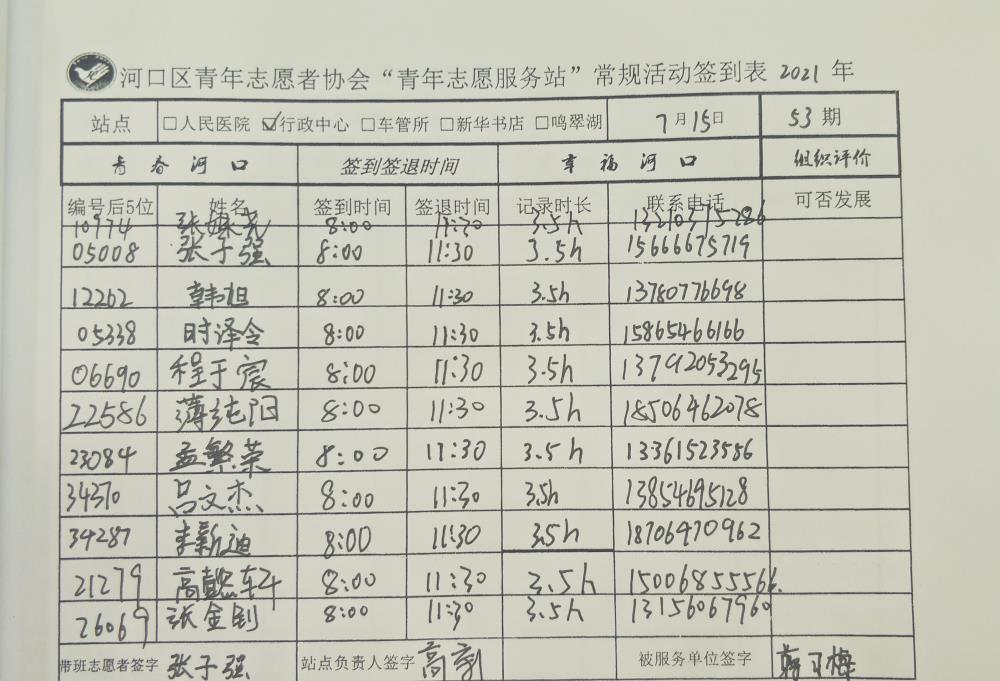 河口区青年志愿者协会“青年志愿服务站”常规活动签到表 2021 年
站点 □人民医院 ☑行政中心 □车管所 □新华书店 □鸣翠湖 7月15日 53期
青春河口 签到签退时间 幸福河口 组织评价
编号后5位 姓名 签到时间 签退时间 记录时长 联系电话 可否发展
10974 张 8:00 11:30 3.5h
05008 张子强 8:00 11:30 3.5h 15666675719
12262 韩旭 8:00 11:30 3.5h 13780776698
05338 时泽令 8:00 11:30 3.5h 15865466166
06690 程于宸 8:00 11:30 3.5h 13792053295
22586 薄纯阳 8:00 11:30 3.5h 18506462078
23084 孟繁荣 8:00 11:30 3.5h 13361523556
34370 吕文杰 8:00 11:30 3.5h 13854695128
34287 李新迪 8:00 11:30 3.5h 18706470962
21279 高 8:00 11:30 3.5h 15006855566
26069 张金钊 8:00 11:30 3.5h 13156067960
带班志愿者签字 张子强 站点负责人签字 高 被服务单位签字